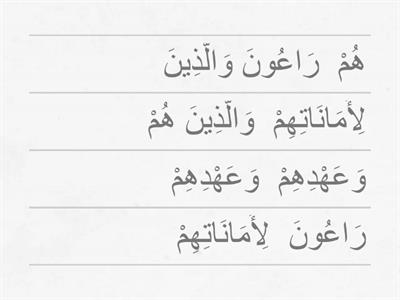 هُمْ رَاعُونَ وَالَّذِينَ
لِأَمَانَاتِهِمْ وَالَّذِينَ هُمْ
وَعَهْدِهِمْ وَعَهْدِهِمْ
رَاعُونَ لِأَمَانَاتِهِمْ